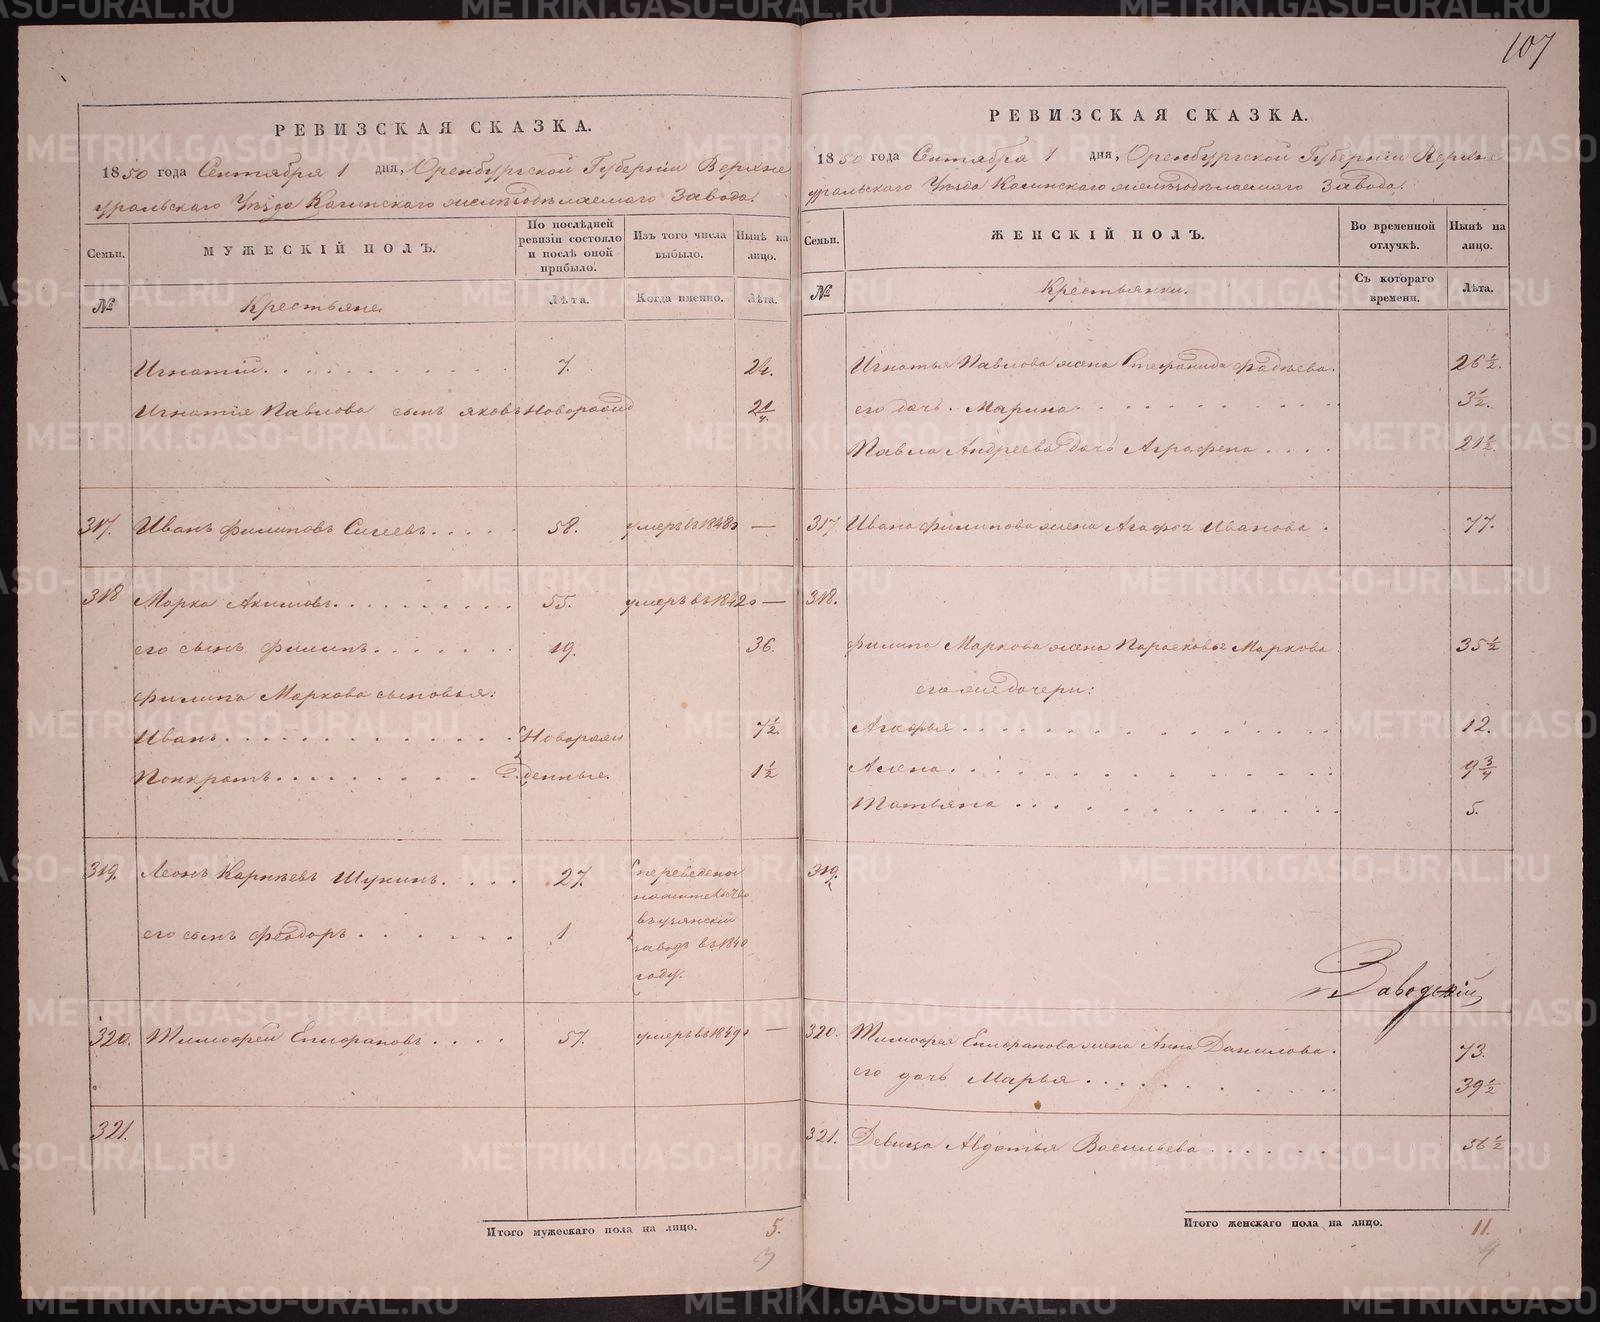 107
РЕВИЗСКАЯ СКАЗКА.
1850 года Сентября 1 дня, Оренбургской Губерніи Верхне
уральскаго Уѣзда Кагинскаго желѣзодѣлаемаго Завода.
Семьи.
МУЖЕСКІЙ ПОЛЪ.
По послѣдней ревизіи состояло и послѣ оной прибыло.
Изъ того числа выбыло.
Нынѣ на лицо.
№
Крестьяне
Лѣта.
Когда именно.
Лѣта.
Игнатій 7. 24.
Игнатія Павлова сынъ Яковъ Новорожд 2 1/4.
317. Иванъ Филиповъ Сысеевъ 58. умеръ въ 1848 г —
318 Марка Акимовъ 55. умеръ въ 1842 г —
его сынъ Филипъ 19. 36.
Филипа Маркова сыновья:
Иванъ Новорож 7 1/2.
Понкратъ денные. 1 1/2
319. Леонъ Карпѣевъ Шукинъ 27. переведены
на жительство
его сынъ Феодоръ 1 в узянскій
заводъ въ 1840
году.
320. Тимофей Епифановъ 57. умеръ въ 1849 г —
321.
Итого мужескаго пола на лицо. 5.
3
РЕВИЗСКАЯ СКАЗКА.
1850 года Сентября 1 дня, Оренбургской Губерніи Верхне
уральскаго Уѣзда Кагинскаго желѣзодѣлаемаго Завода.
Семьи.
ЖЕНСКІЙ ПОЛЪ.
Во временной отлучкѣ.
Нынѣ на лицо.
№
Крестьянки.
Съ котораго времени.
Лѣта.
Игнатья Павлова жена Стефанида Фадѣева. 26 1/2.
его дочь Марина 3 1/2.
Павла Андреева дочь Аграфена 21 1/2.
317. Ивана Филипова жена Агафья Иванова 77.
318.
Филипа Маркова жена Парасковья Маркова 35 1/2
его же дочери:
Агафья 12.
Алена 9 3/4
Татьяна 5.
319.
Заводскій
320. Тимофея Епифанова жена Анна Данилова. 73.
его дочь Марья 39 1/2
321. Девица Авдотья Васильева 56 1/2
Итого женскаго пола на лицо. 11.
9
METRIKI.GASO-URAL.RU